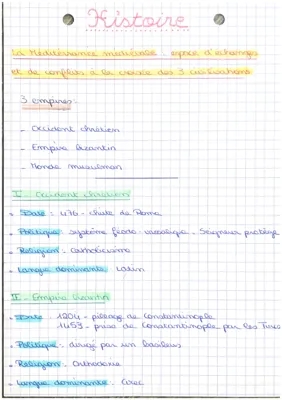 Histoire
La Méditerranée médiévale : espace d'échanges
et de conflits à la croisée des 3 civilisations
3 empires:
- Occident chrétien
- Empire bizantin
- Monde musulman
I - Occident chrétien
• Date : 476 - chute de Rome
• Politique : système féodo-vassalique - Seigneur protège
• Religion : catholicisme
• Langue dominante : Latin
II - Empire bizantin
• Date : 1204 - pillage de Constantinople
1453 - prise de Constantinople par les Turcs
• Politique : dirigé par un basileus
• Religion : Orthodoxie
• Langue dominante : Grec